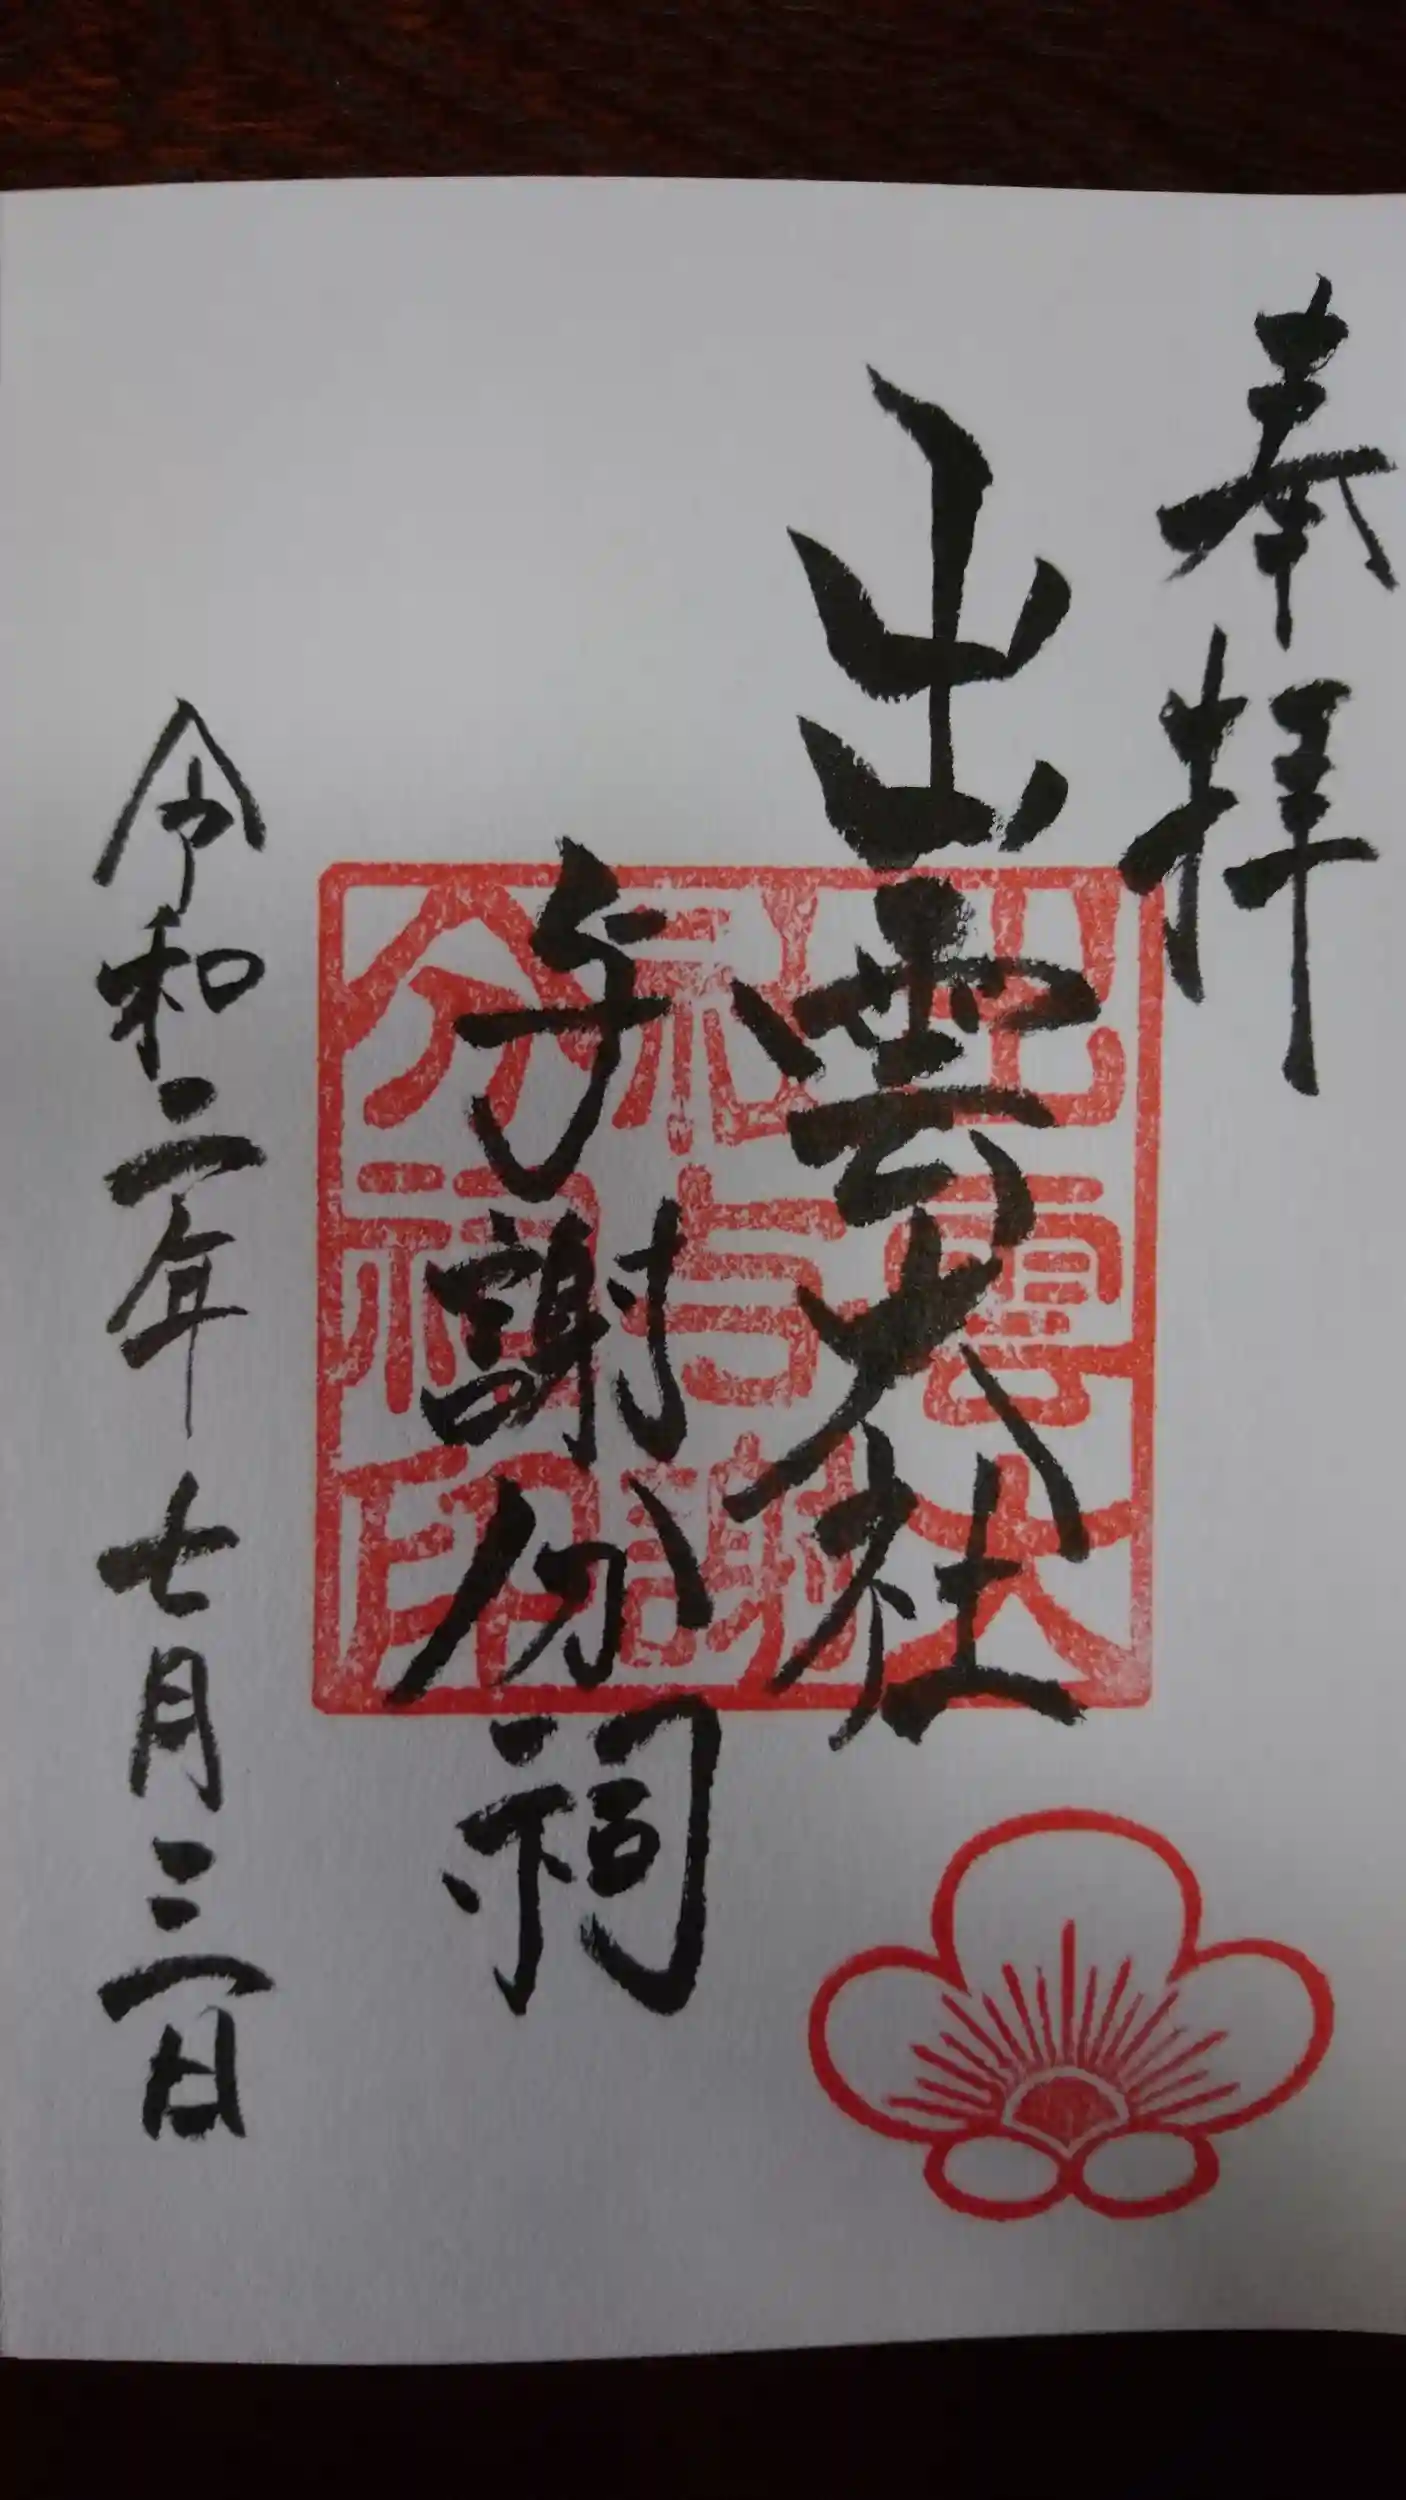 奉拝
出雲大社
与謝分祠
令和二年 七月三日
出雲大
社与謝
分祠印